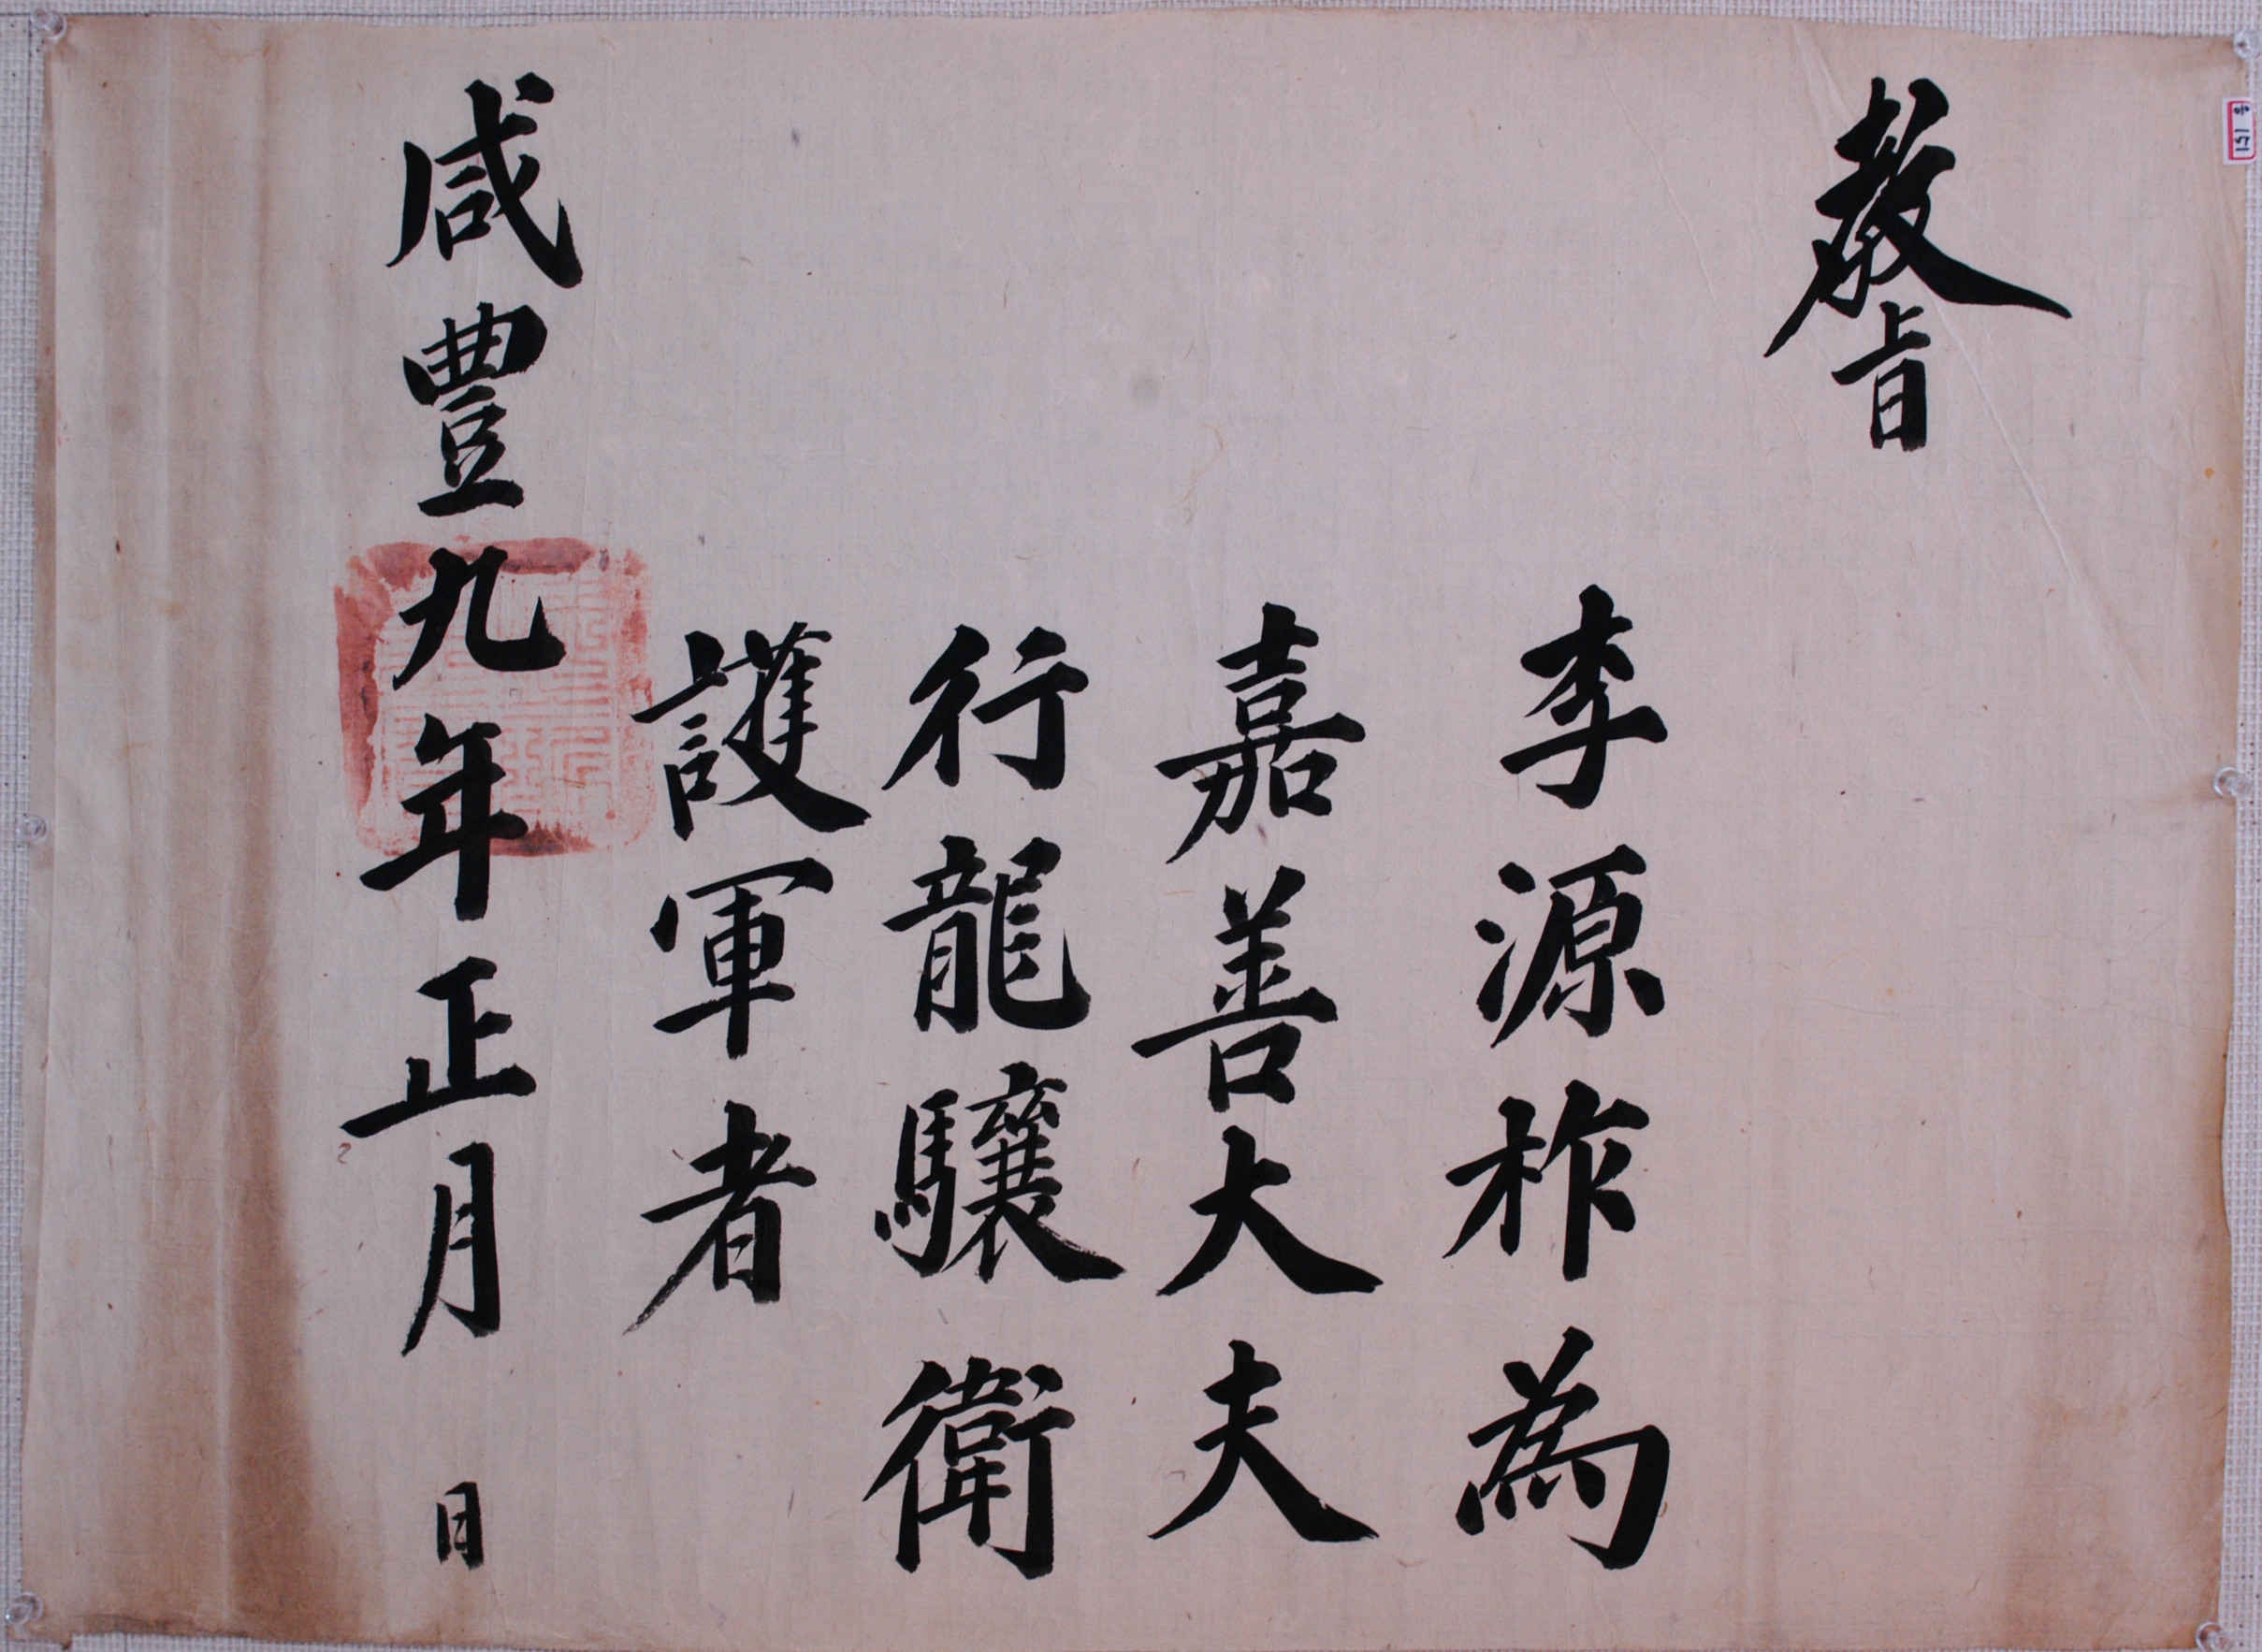 敎旨
李源祚爲
嘉善大夫
行龍驤衛
護軍者
咸豊九年正月 日
151 号